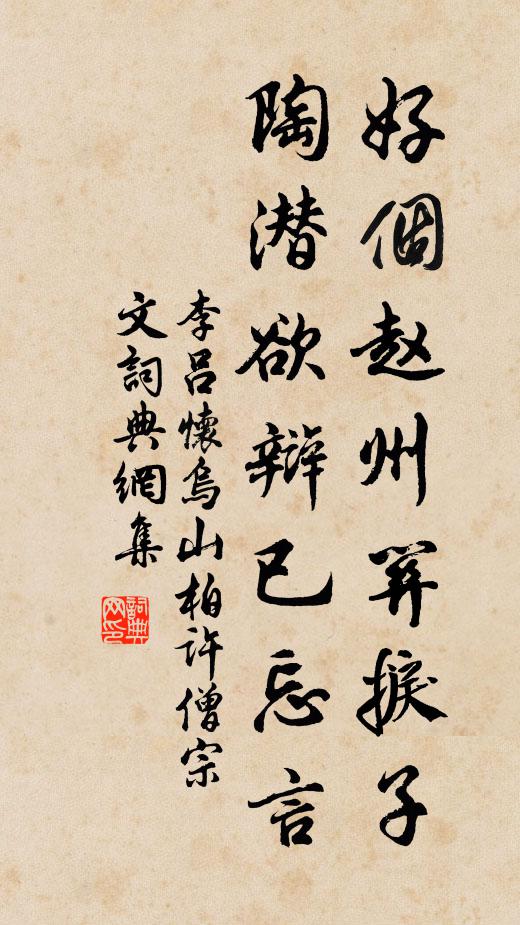 好個赵州關捩子
陶潜欲辯已忘言
李呂懷烏山柏許僧宗
文詞典網集
詞典网印